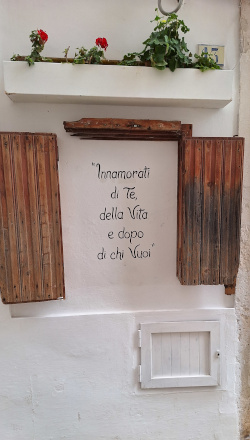 "Innamorati
di Te,
della Vita
e dopo
di chi Vuoi"